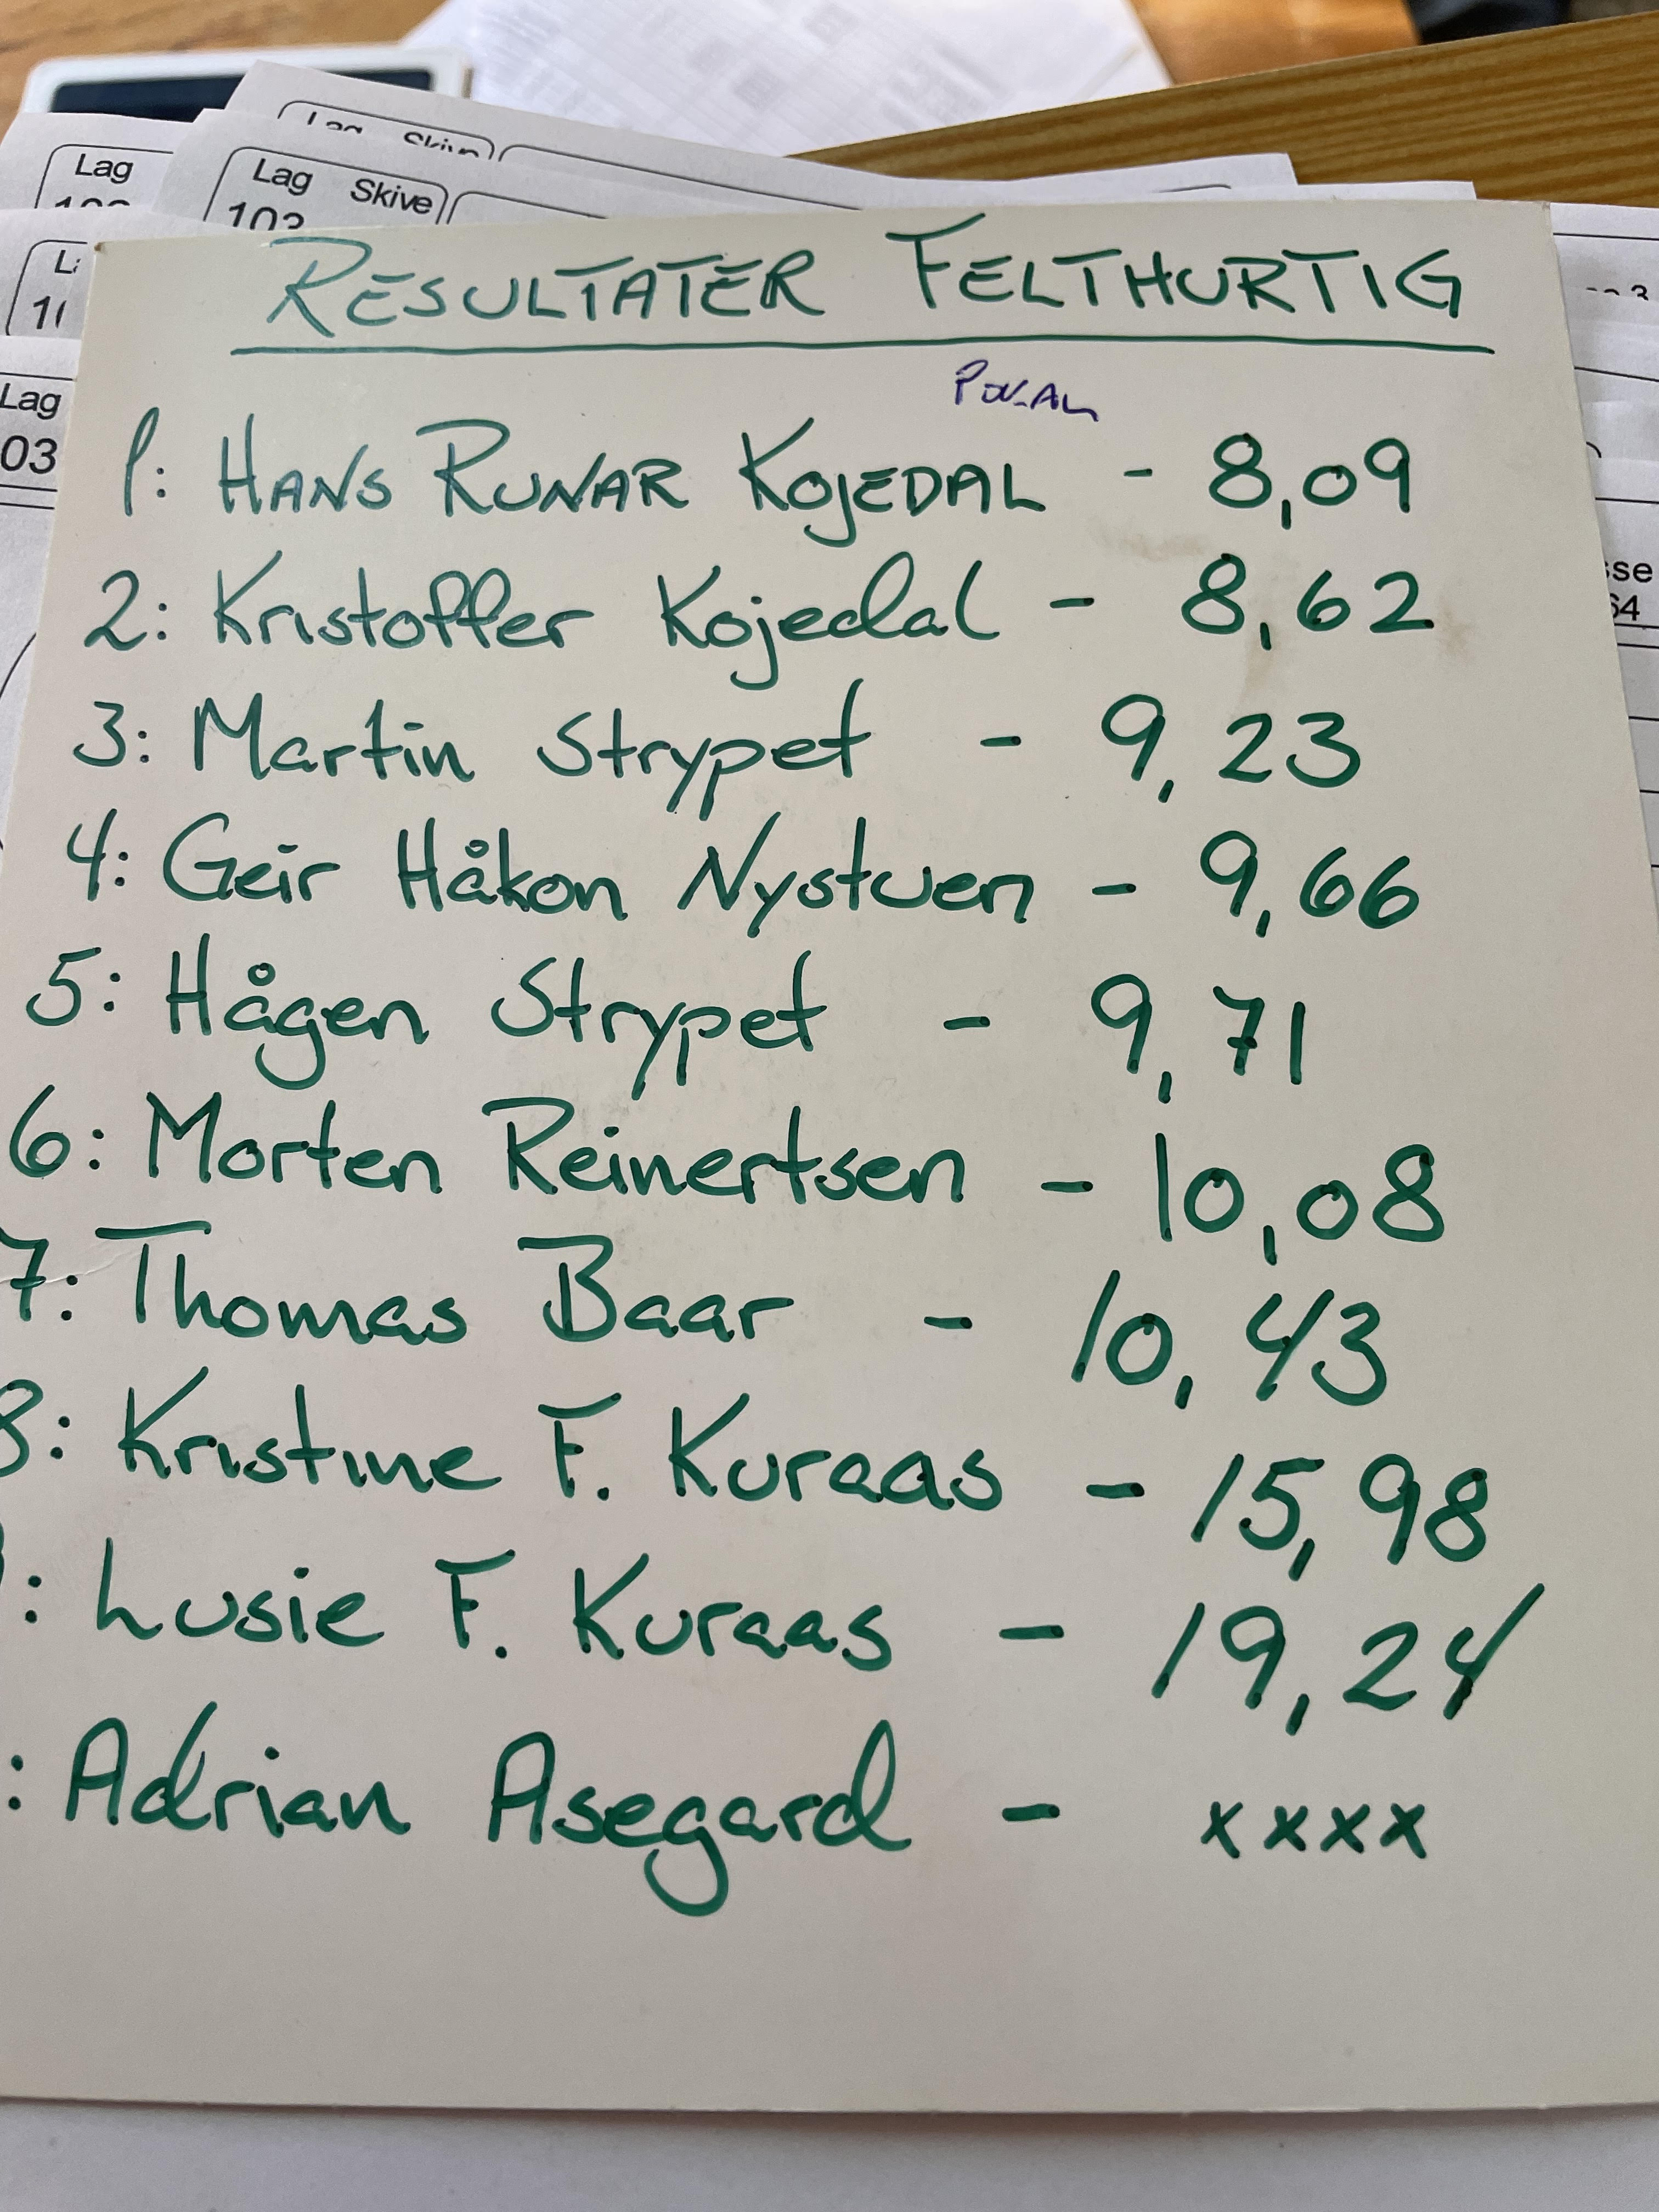 Lag Skive
Lag
Lag Skive
103
RESULTATER FELTHURTIG
1: HANS RUNAR KOJEDAL - 8,09
2: Kristoffer Kojedal - 8,62
3: Martin Strypet - 9,23
4: Geir Håkon Nystuen - 9,66
5: Hågen Strypet - 9,71
6: Morten Reinertsen - 10,08
7: Thomas Baar - 10,43
8: Kristine F. Kuraas - 15,98
: Lusie F. Kuraas - 19,24
: Adrian Asegard - xxxx
Lag
03